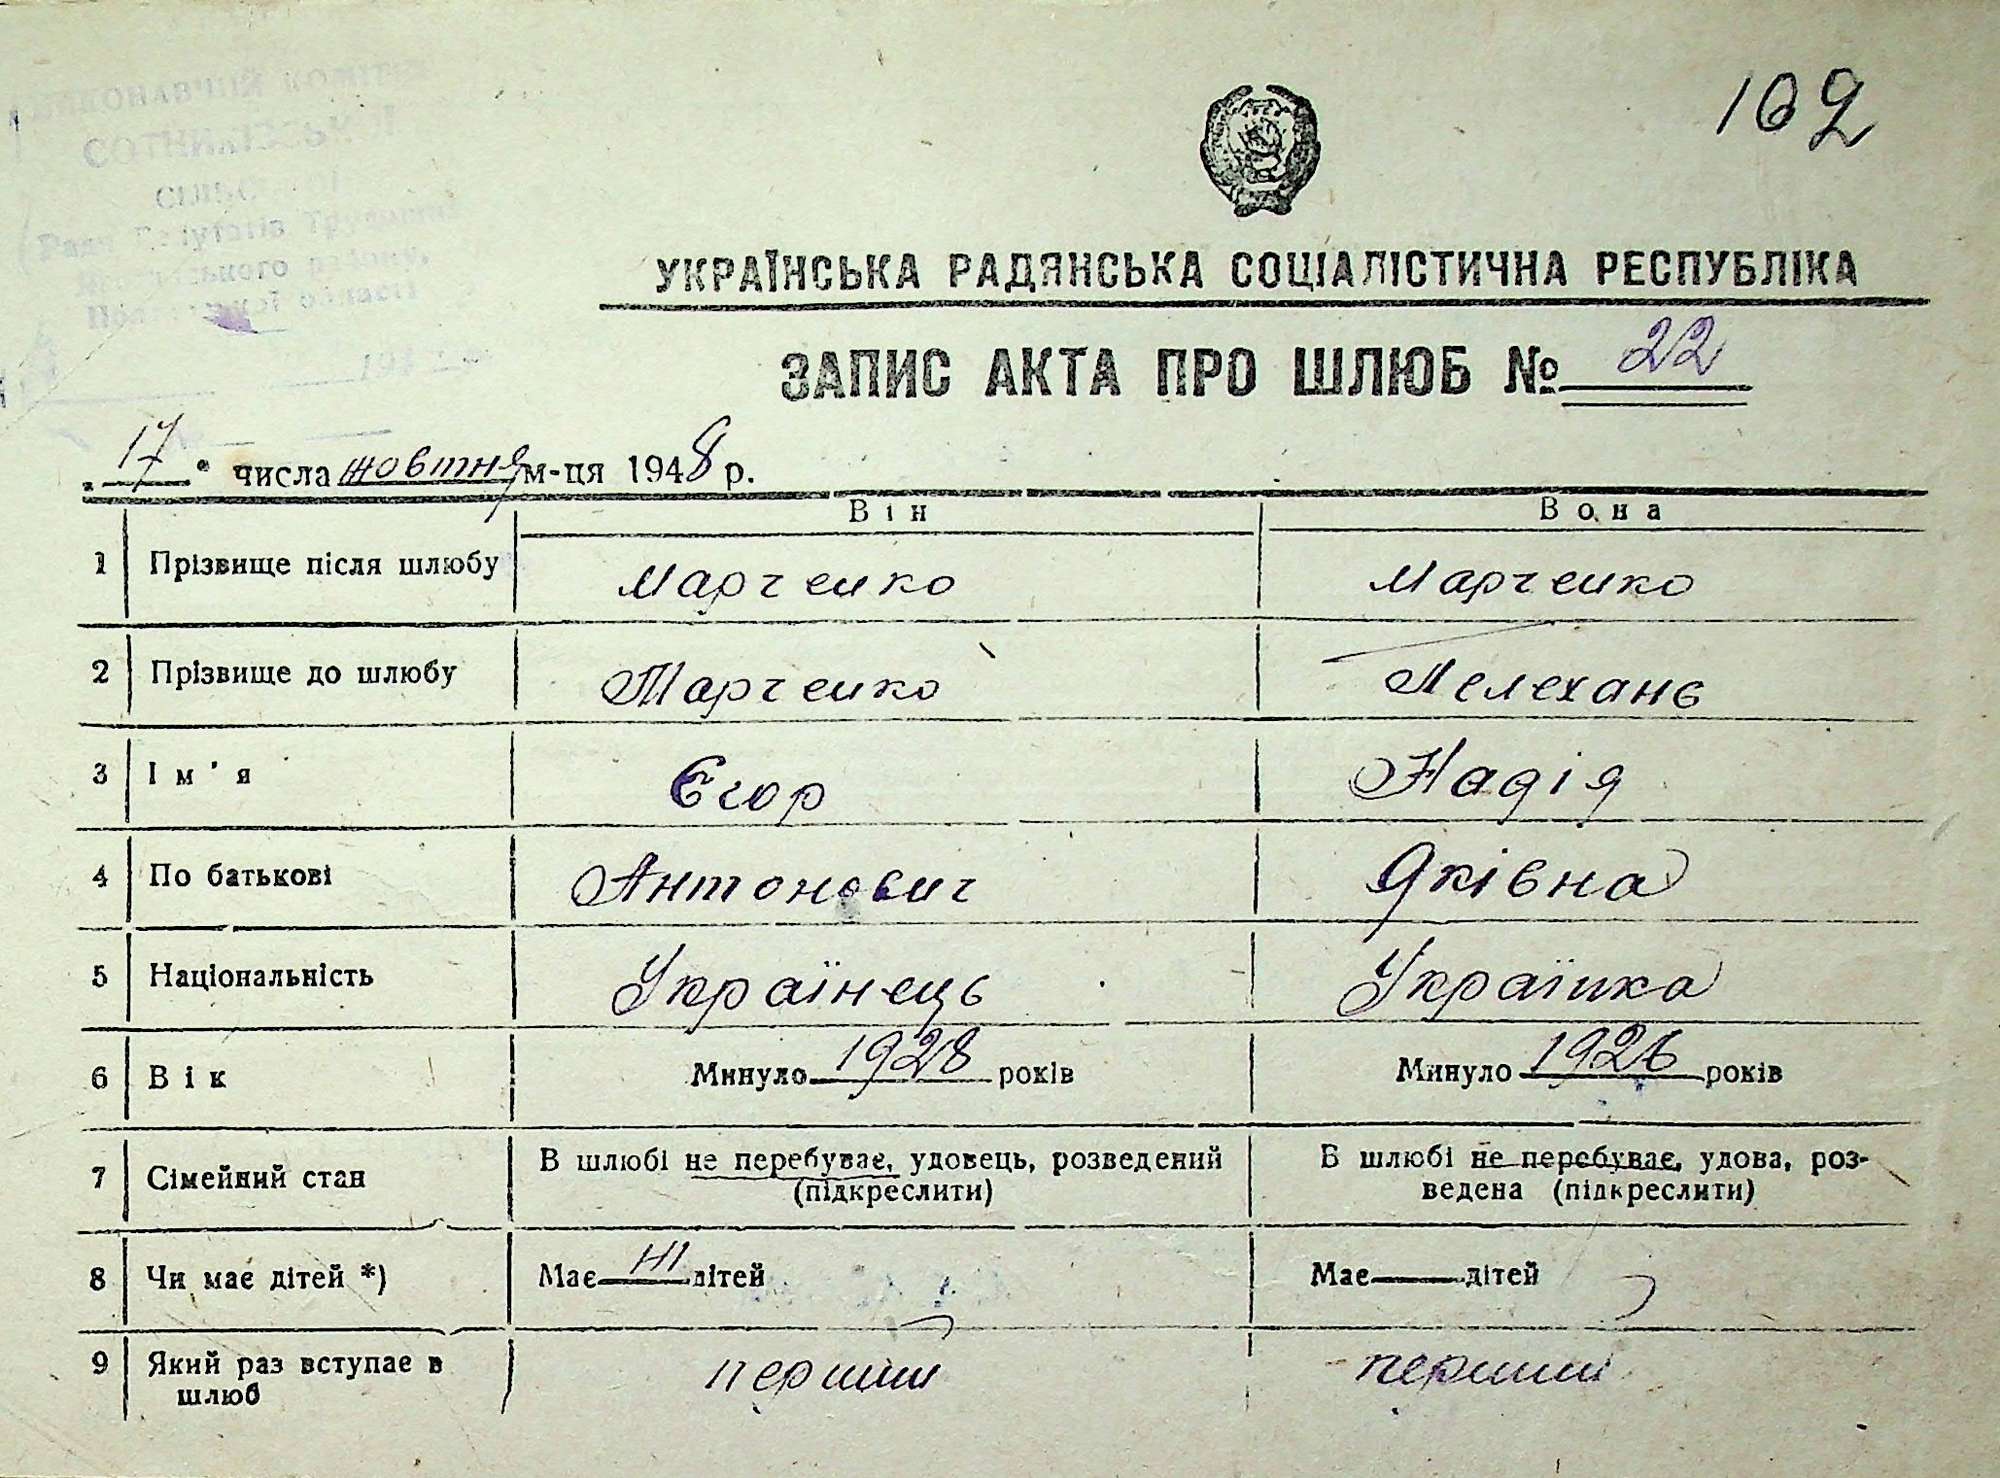 ВИКОНАВЧИЙ КОМІТЕТ
СОТНИКІВСЬКОЇ
Ради Депутатів Трудящих
району,
Полтавської області
194
102
УКРАЇНСЬКА РАДЯНСЬКА СОЦІАЛІСТИЧНА РЕСПУБЛІКА
ЗАПИС АКТА ПРО ШЛЮБ № 22
„17" числа жовтня м-ця 1948 р.
Він Вона
1 Прізвище після шлюбу Марченко Марченко
2 Прізвище до шлюбу Марченко Пелехань
3 Ім'я Єгор Надія
4 По батькові Антонович Яківна
5 Національність Українець Українка
6 Вік Минуло 1928 років Минуло 1926 років
7 Сімейний стан В шлюбі не перебуває, удовець, розведений (підкреслити) В шлюбі не перебуває, удова, роз-
ведена (підкреслити)
8 Чи має дітей *) Має ні дітей Має дітей
9 Який раз вступає в
шлюб перший перший